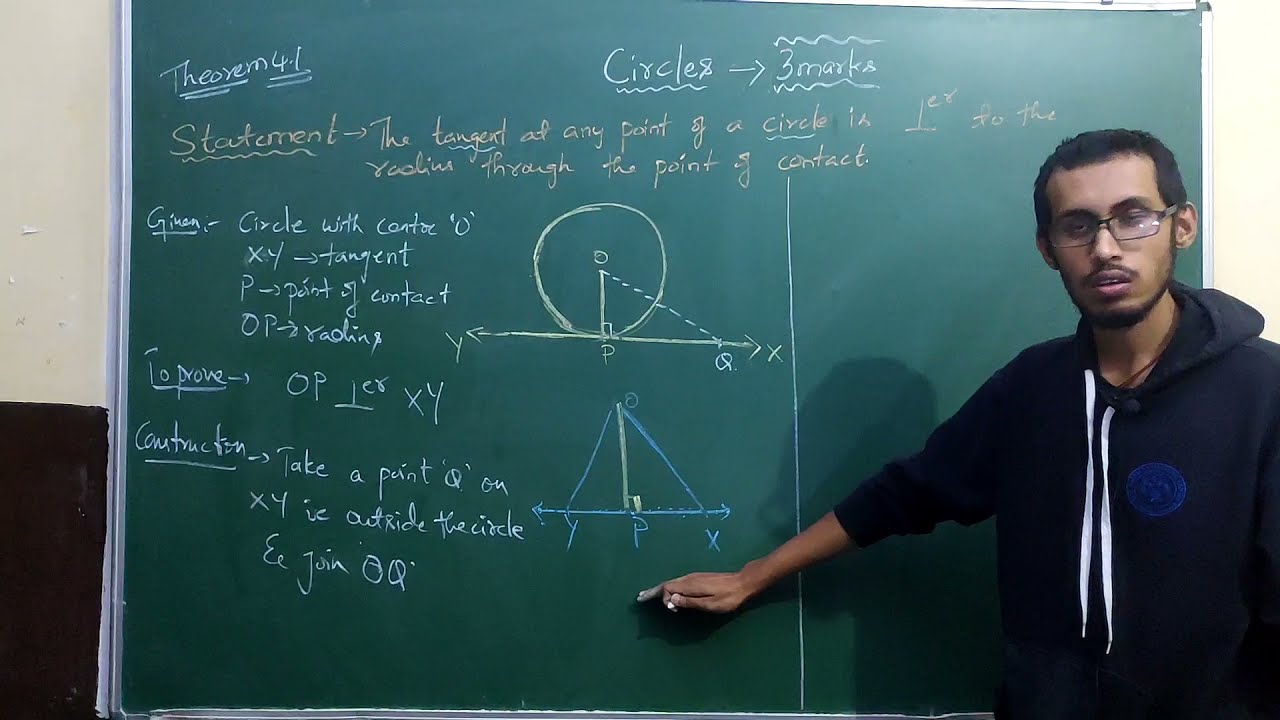 Theorem 4.1
Circles → 3 marks
Statement → The tangent at any point of a circle is ⊥er to the
radius through the point of contact.
Given:- Circle with centre 'O'
XY → tangent
P → point of contact
OP → radius
To prove → OP ⊥er XY
Construction → Take a point 'Q' on
XY ie outside the circle
& join OQ.
O
Y
P
Q.
X
O
Y
P
X